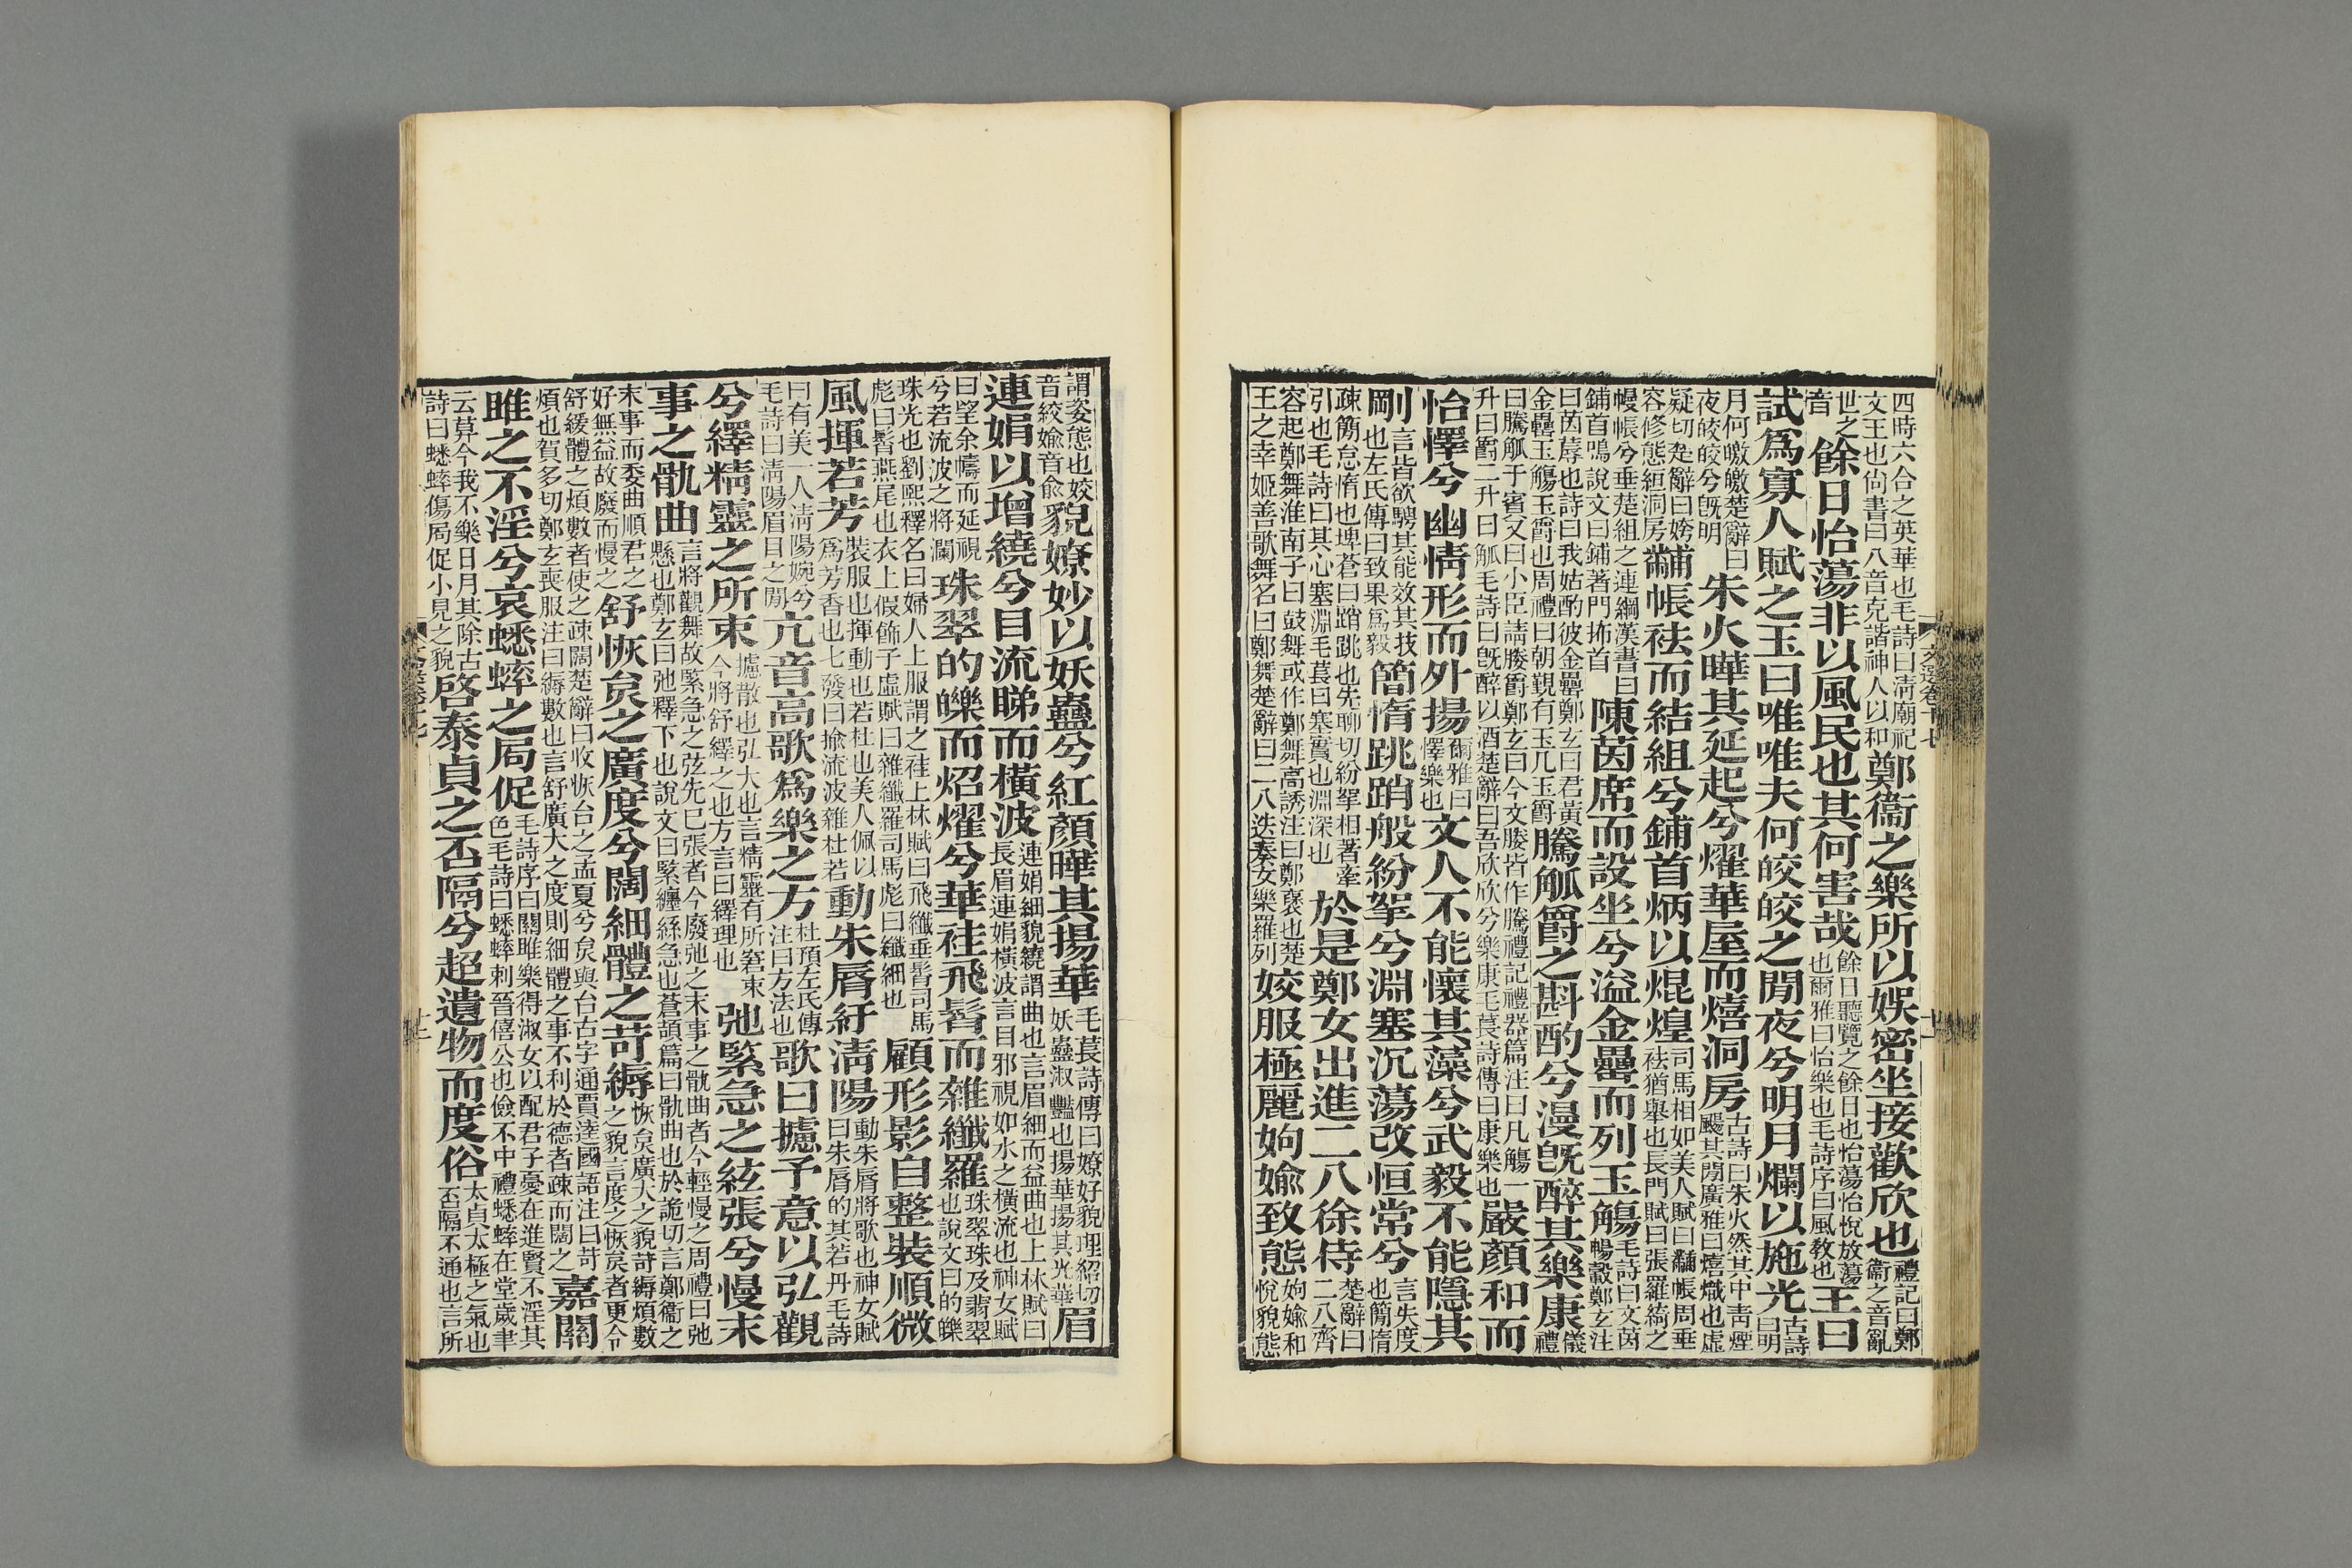 四時六合之英華也毛詩曰清廟祀文王也尚書曰八音克諧神人以和鄭衞之樂所以娛密坐接歡欣也禮記曰鄭衞之音亂
世之音餘日怡蕩非以風民也其何害哉餘日聽覽之餘日也怡蕩怡悅放蕩也爾雅曰怡樂也毛詩序曰風教也王曰
試爲寡人賦之玉曰唯唯夫何皎皎之閒夜兮明月爛以施光古詩曰明
月何皦皦楚辭曰夜皎皎兮旣明朱火曄其延起兮燿華屋而熺洞房古詩曰朱火然其中靑煙颺其閒廣雅曰熺熾也虛
疑切楚辭曰姱容修態絙洞房黼帳袪而結組兮鋪首炳以焜煌司馬相如美人賦曰黼帳周垂袪猶舉也長門賦曰張羅綺之
幔帳兮垂楚組之連綱漢書曰鋪首鳴說文曰鋪著門抪首陳茵席而設坐兮溢金罍而列玉觴毛詩曰文茵暢轂鄭玄注
曰茵蓐也詩曰我姑酌彼金罍鄭玄曰君黃金罍玉觴玉爵也周禮曰朝覲有玉几玉爵騰觚爵之斟酌兮漫旣醉其樂康儀禮
曰騰觚于賓又曰小臣請媵爵鄭玄曰今文媵皆作騰禮記禮器篇注曰凡觴一升曰爵二升曰觚毛詩曰旣醉以酒楚辭曰吾欣欣兮樂康毛萇詩傳曰康樂也嚴顏和而
怡懌兮幽情形而外揚爾雅曰懌樂也文人不能懷其藻兮武毅不能隱其
剛言皆欲騁其能效其技也左氏傳曰致果爲毅簡惰跳踃般紛挐兮淵塞沉蕩改恒常兮言失度也簡惰
疎簡怠惰也埤蒼曰踃跳也先聊切紛挐相著牽引也毛詩曰其心塞淵毛萇曰塞實也淵深也於是鄭女出進二八徐侍楚辭曰二八齊
容起鄭舞淮南子曰鼓舞或作鄭舞高誘注曰鄭褎也楚王之幸姬善歌舞名曰鄭舞楚辭曰二八迭奏女樂羅列姣服極麗姁媮致態姁媮和悅貌態
謂姿態也姣音絞媮音俞貌嫽妙以妖蠱兮紅顏曄其揚華毛萇詩傳曰嫽好貌理紹切妖蠱淑豔也揚華揚其光華眉
連娟以增繞兮目流睇而橫波連娟細貌繞謂曲也言眉細而益曲也上林賦曰長眉連娟橫波言目邪視如水之橫流也神女賦
曰望余幬而延視兮若流波之將瀾珠翠的皪而炤燿兮華袿飛髾而雜纖羅珠翠珠及翡翠也說文曰的皪
珠光也劉熙釋名曰婦人上服謂之袿上林賦曰飛纖垂髾司馬彪曰髾燕尾也衣上假飾子虛賦曰雜纖羅司馬彪曰纖細也顧形影自整裝順微
風揮若芳裝服也揮動也若杜也美人佩以爲芳香也七發曰揄流波雜杜若動朱脣紆淸陽動朱脣將歌也神女賦曰朱脣的其若丹毛詩
曰有美一人淸陽婉兮毛詩曰淸陽眉目之閒亢音高歌爲樂之方杜預左氏傳注曰方法也歌曰攄予意以弘觀
兮繹精靈之所束攄散也弘大也言精靈有所窘束今將舒繹之也方言曰繹理也弛緊急之絃張兮慢末
事之骫曲言將觀舞故緊急之弦先已張者今廢弛之末事之骫曲者今輕慢之周禮曰弛懸也鄭玄曰弛釋下也說文曰緊纏絲急也蒼頡篇曰骫曲也於詭切言鄭衞之
末事而委曲順君之好無益故廢而慢之舒恢炱之廣度兮闊細體之苛縟恢炱廣大之貌苛縟煩數之貌言度之恢炱者更令
舒緩體之煩數者使之疎闊楚辭曰收恢台之孟夏兮炱與台古字通賈逵國語注曰苛煩也賀多切鄭玄喪服注曰縟數也言舒廣大之度則細體之事不利於德者疎而闊之嘉關
雎之不淫兮哀蟋蟀之局促毛詩序曰關雎樂得淑女以配君子憂在進賢不淫其色毛詩曰蟋蟀刺晉僖公也儉不中禮蟋蟀在堂歲聿
云莫今我不樂日月其除古詩曰蟋蟀傷局促小見之貌啓泰貞之否隔兮超遺物而度俗太貞太極之氣也否隔不通也言所